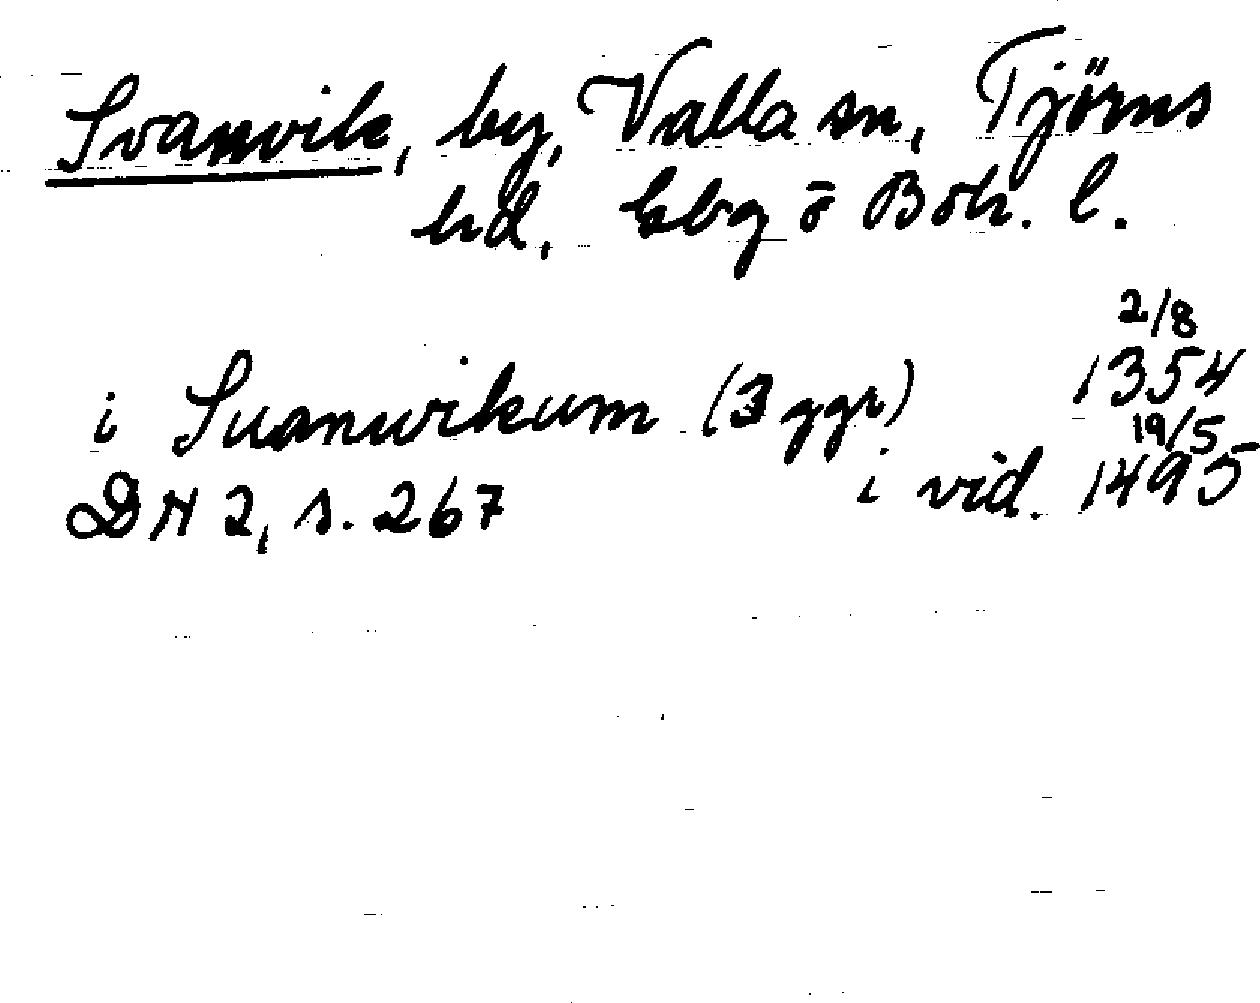 Svanvik, by, Valla sn, Tjörns
hd, Gbg o Boh. l.
2/8
i Suanwikum (3 ggr) 1354
19/5
DN 2, s. 267 i vid. 1495